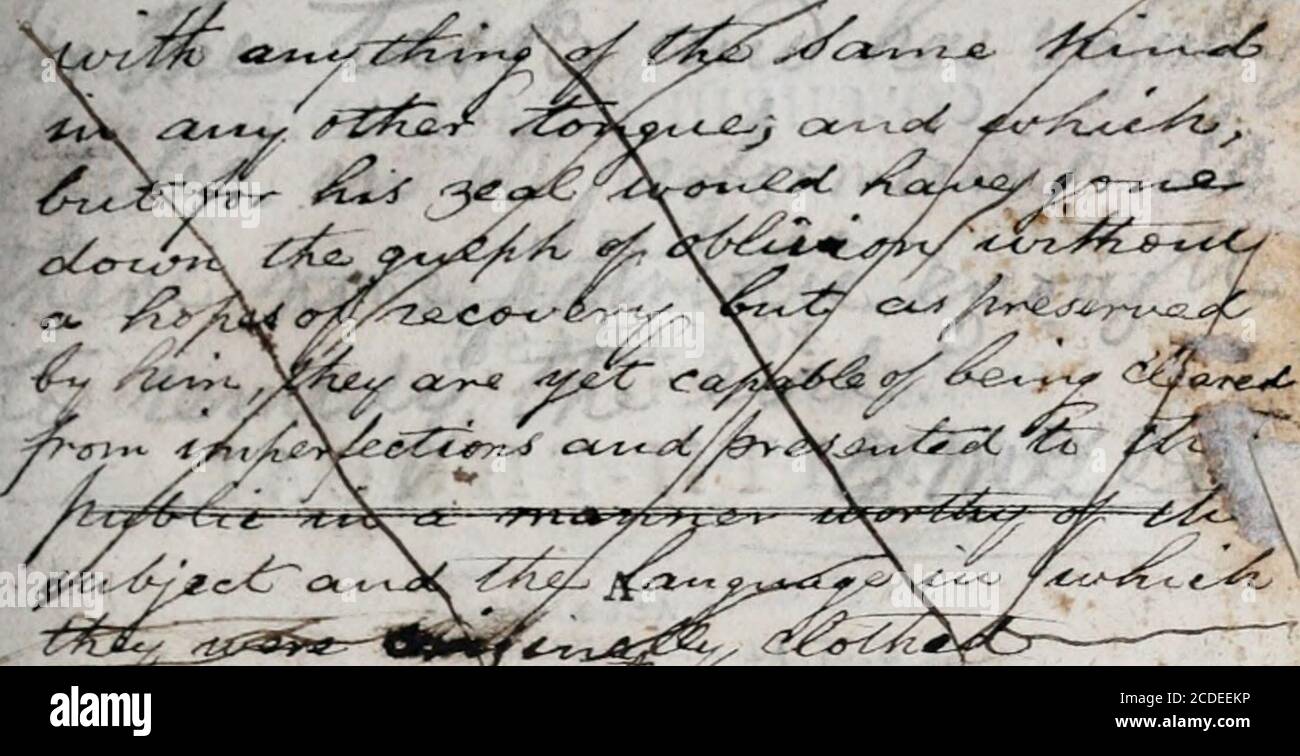 with anything of the same kind
in any other tongue; and which,
but for his zeal would have gone
down the gulph of oblivion without
a hopes of recovery but as preserved
by him, they are yet capable of being cleared
from imperfections and presented to the
public in a manner worthy of the
subject and the language in which
they were originally clothed
alamy
Image ID: 2CDEEKP
www.alamy.com